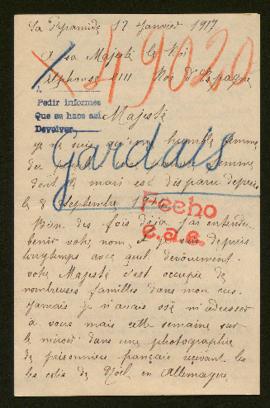 La Pyramide 17 Janvier 1917
49020
A Sa Majesté le Roi
Alphonse XIII Roi d'Espagne
Pedir informes
Que se hace así
Devolver
Majesté
Je ne suis qu'une humble femme
du
dont le mari est disparu depuis
le 8 Septembre
Gardas
Hecho
Bien des fois déjà j'ai entendu
bénir votre nom, et je sais depuis
longtemps avec quel dévouement
votre Majesté s'est occupée de
nombreuses familles dans mon cas.
Jamais je n'avais osé m'adresser
à vous mais cette semaine sur
le miroir dans une photographie
de prisonniers français recevant les
colis de Noël en Allemagne,